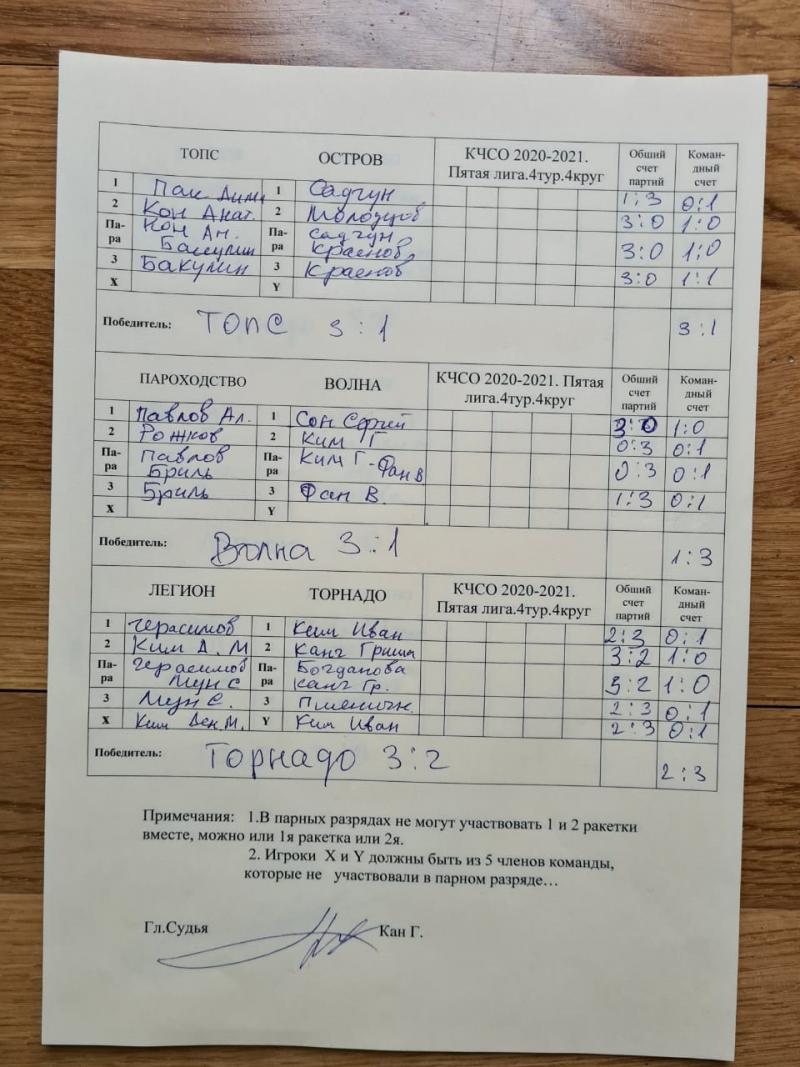 ТОПС ОСТРОВ КЧСО 2020-2021. Пятая лига.4тур.4круг Общий счет партий Коман-дный счет
1 Пак Дим. 1 Садчун 1:3 0:1
2 Кон Анат. 2 Молодцов 3:0 1:0
Па-ра Кон Ан. Па-ра Садчун
Бакулин Краснов 3:0 1:0
3 Бакулин 3 Краснов 3:0 1:1
X Y
Победитель: ТОПС 3:1 3:1
ПАРОХОДСТВО ВОЛНА КЧСО 2020-2021. Пятая лига.4тур.4круг Общий счет партий Коман-дный счет
1 Павлов Ал. 1 Сон Сергей 3:0 1:0
2 Рожков 2 Ким Г 0:3 0:1
Па-ра Павлов Па-ра Ким Г-Фан В
Бриль 0:3 0:1
3 Бриль 3 Фан В. 1:3 0:1
X Y
Победитель: Волна 3:1 1:3
ЛЕГИОН ТОРНАДО КЧСО 2020-2021. Пятая лига.4тур.4круг Общий счет партий Коман-дный счет
1 Герасимов 1 Ким Иван 2:3 0:1
2 Ким Д. М 2 Канг Гриша 3:2 1:0
Па-ра Герасимов Па-ра Богданова
Мун С Канг Гр. 3:2 1:0
3 Мун С. 3 Пшеничн. 2:3 0:1
X Ким Ден М. Y Ким Иван 2:3 0:1
Победитель: Торнадо 3:2 2:3
Примечания: 1.В парных разрядах не могут участвовать 1 и 2 ракетки
вместе, можно или 1я ракетка или 2я.
2. Игроки X и Y должны быть из 5 членов команды,
которые не участвовали в парном разряде…
Гл.Судья Кан Г.